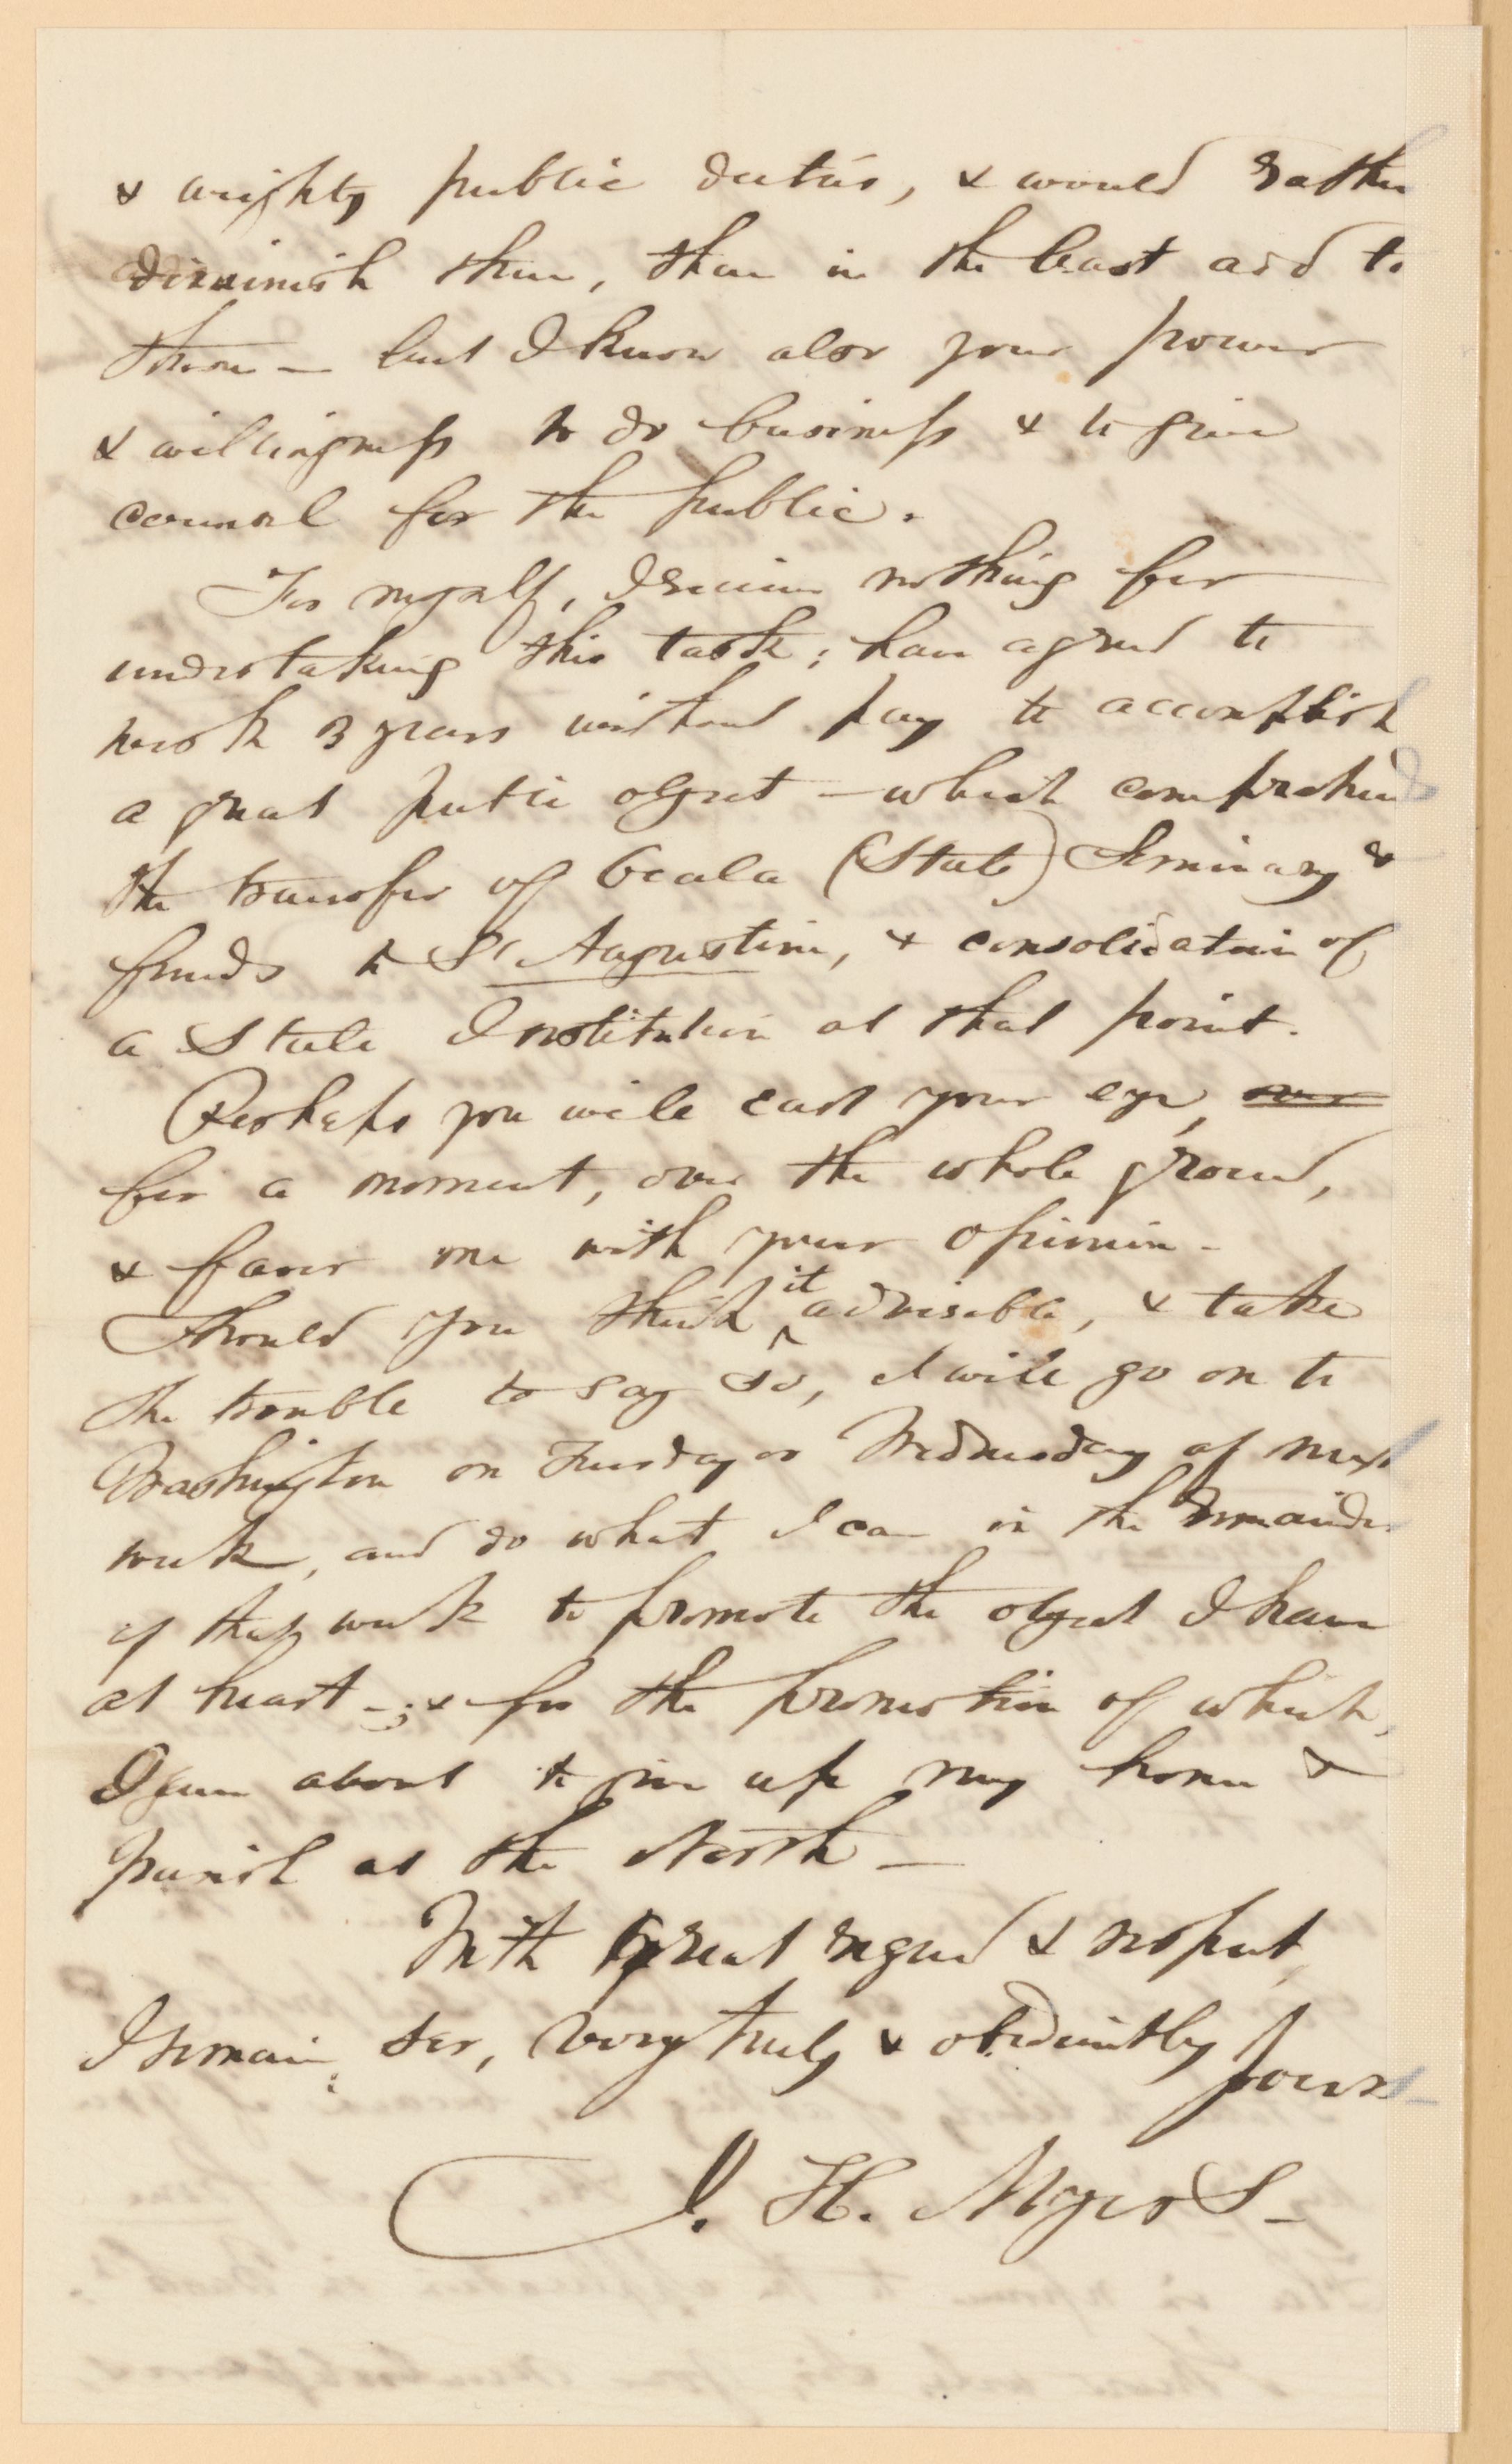 & weighty public duties, & would rather
diminish them, than in the least add to
them — but I know also your power
& willingness to do business & to give
counsel for the public.
For myself, I receive nothing for
undertaking this task; have agreed to
work 3 years without pay to accomplish
a great public object — which comprehends
the transfer of Ocala (State) Seminary &
funds to St Augustine, & consolidation of
a State Institution at that point.
Perhaps you will cast your eye, over
for a moment, over the whole ground,
& favor me with your opinion -
Should you think it advisable, & take
the trouble to say so, I will go on to
Washington on Tuesday or Wednesday of next
week, and do what I can in the remainder
of that week to promote the object I have
at heart -; & for the promotion of which,
I am about to give up my home &
parish at the North —
With great regard & respect,
I remain, Sir, very truly & obediently yours -
J. H. Myers -